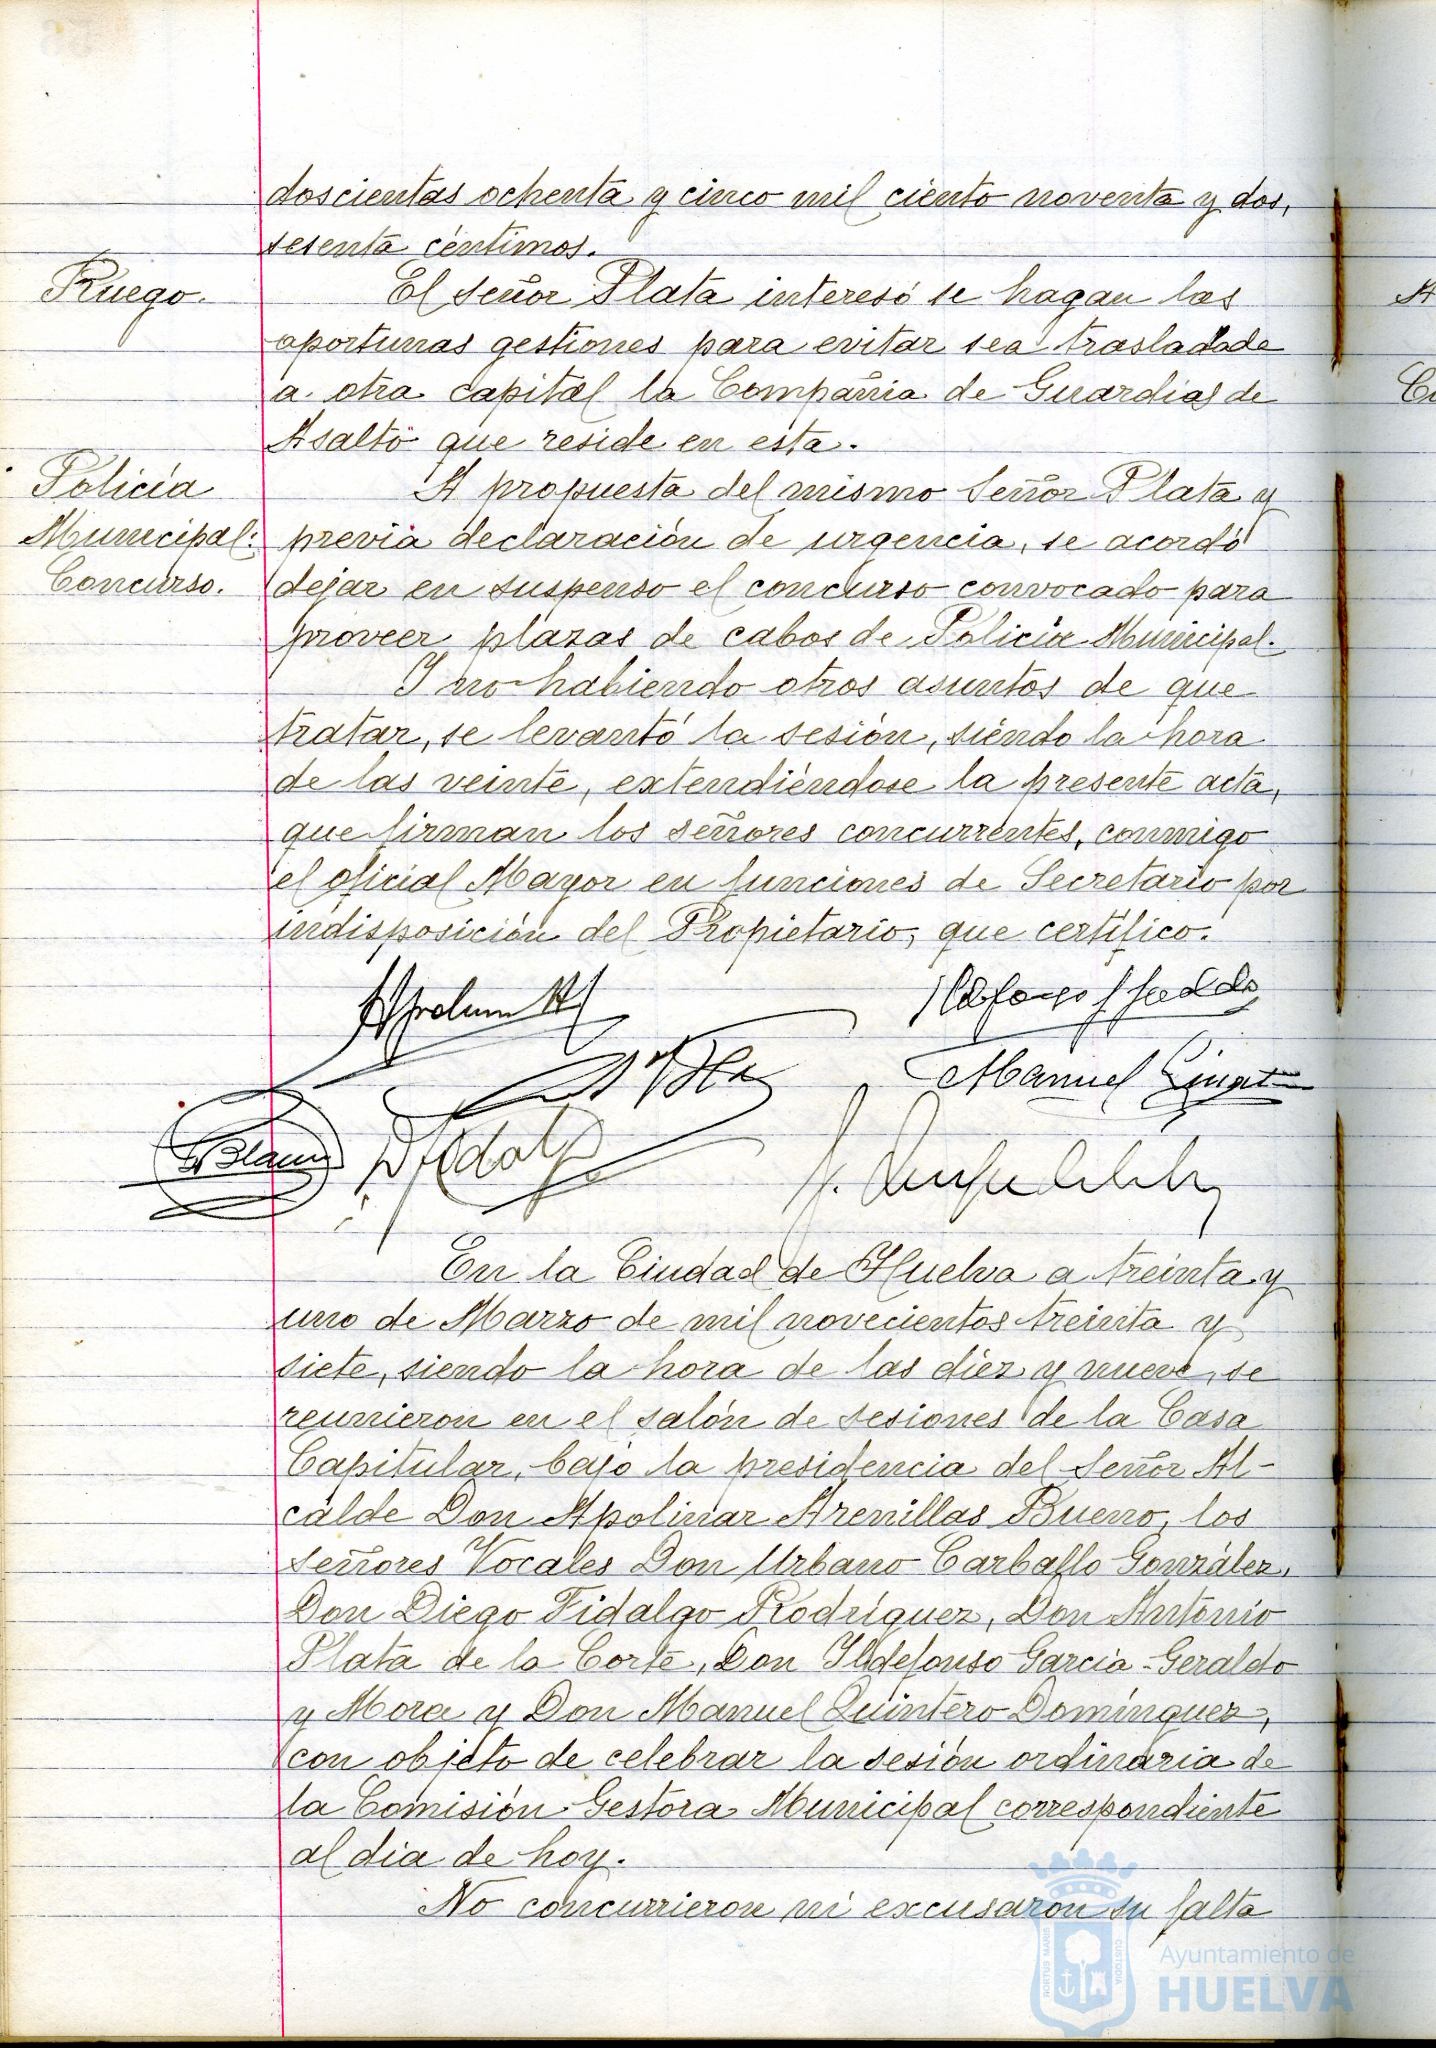 doscientas ochenta y cinco mil ciento noventa y dos,
sesenta céntimos.
Ruego.
El señor Plata interesó se hagan las
oportunas gestiones para evitar sea trasladada
a otra capital la Compañia de Guardias de
Asalto que reside en esta.
Policía
Municipal:
Concurso.
A propuesta del mismo Señor Plata y
previa declaración de urgencia, se acordó
dejar en suspenso el concurso convocado para
proveer plazas de cabos de Policia Municipal.
Y no habiendo otros asuntos de que
tratar, se levantó la sesión, siendo la hora
de las veinte, extendiéndose la presente acta,
que firman los señores concurrentes, conmigo
el oficial Mayor en funciones de Secretario por
indisposición del Propietario, que certifico.
Manuel
En la Ciudad de Huelva a treinta y
uno de Marzo de mil novecientos treinta y
siete, siendo la hora de las diez y nueve, se
reunieron en el salón de sesiones de la Casa
Capitular, bajo la presidencia del Señor Al-
calde Don Apolinar Arenillas Bueno, los
señores Vocales Don Urbano Carballo González,
Don Diego Fidalgo Rodríguez, Don Antonio
Plata de la Corte, Don Ildefonso Garcia-Geraldo
y Mora y Don Manuel Quintero Domínguez,
con objeto de celebrar la sesión ordinaria de
la Comisión Gestora Municipal correspondiente
al dia de hoy.
No concurrieron ni excusaron su falta
PORTUS MARIS CUSTODIA
Ayuntamiento de
HUELVA